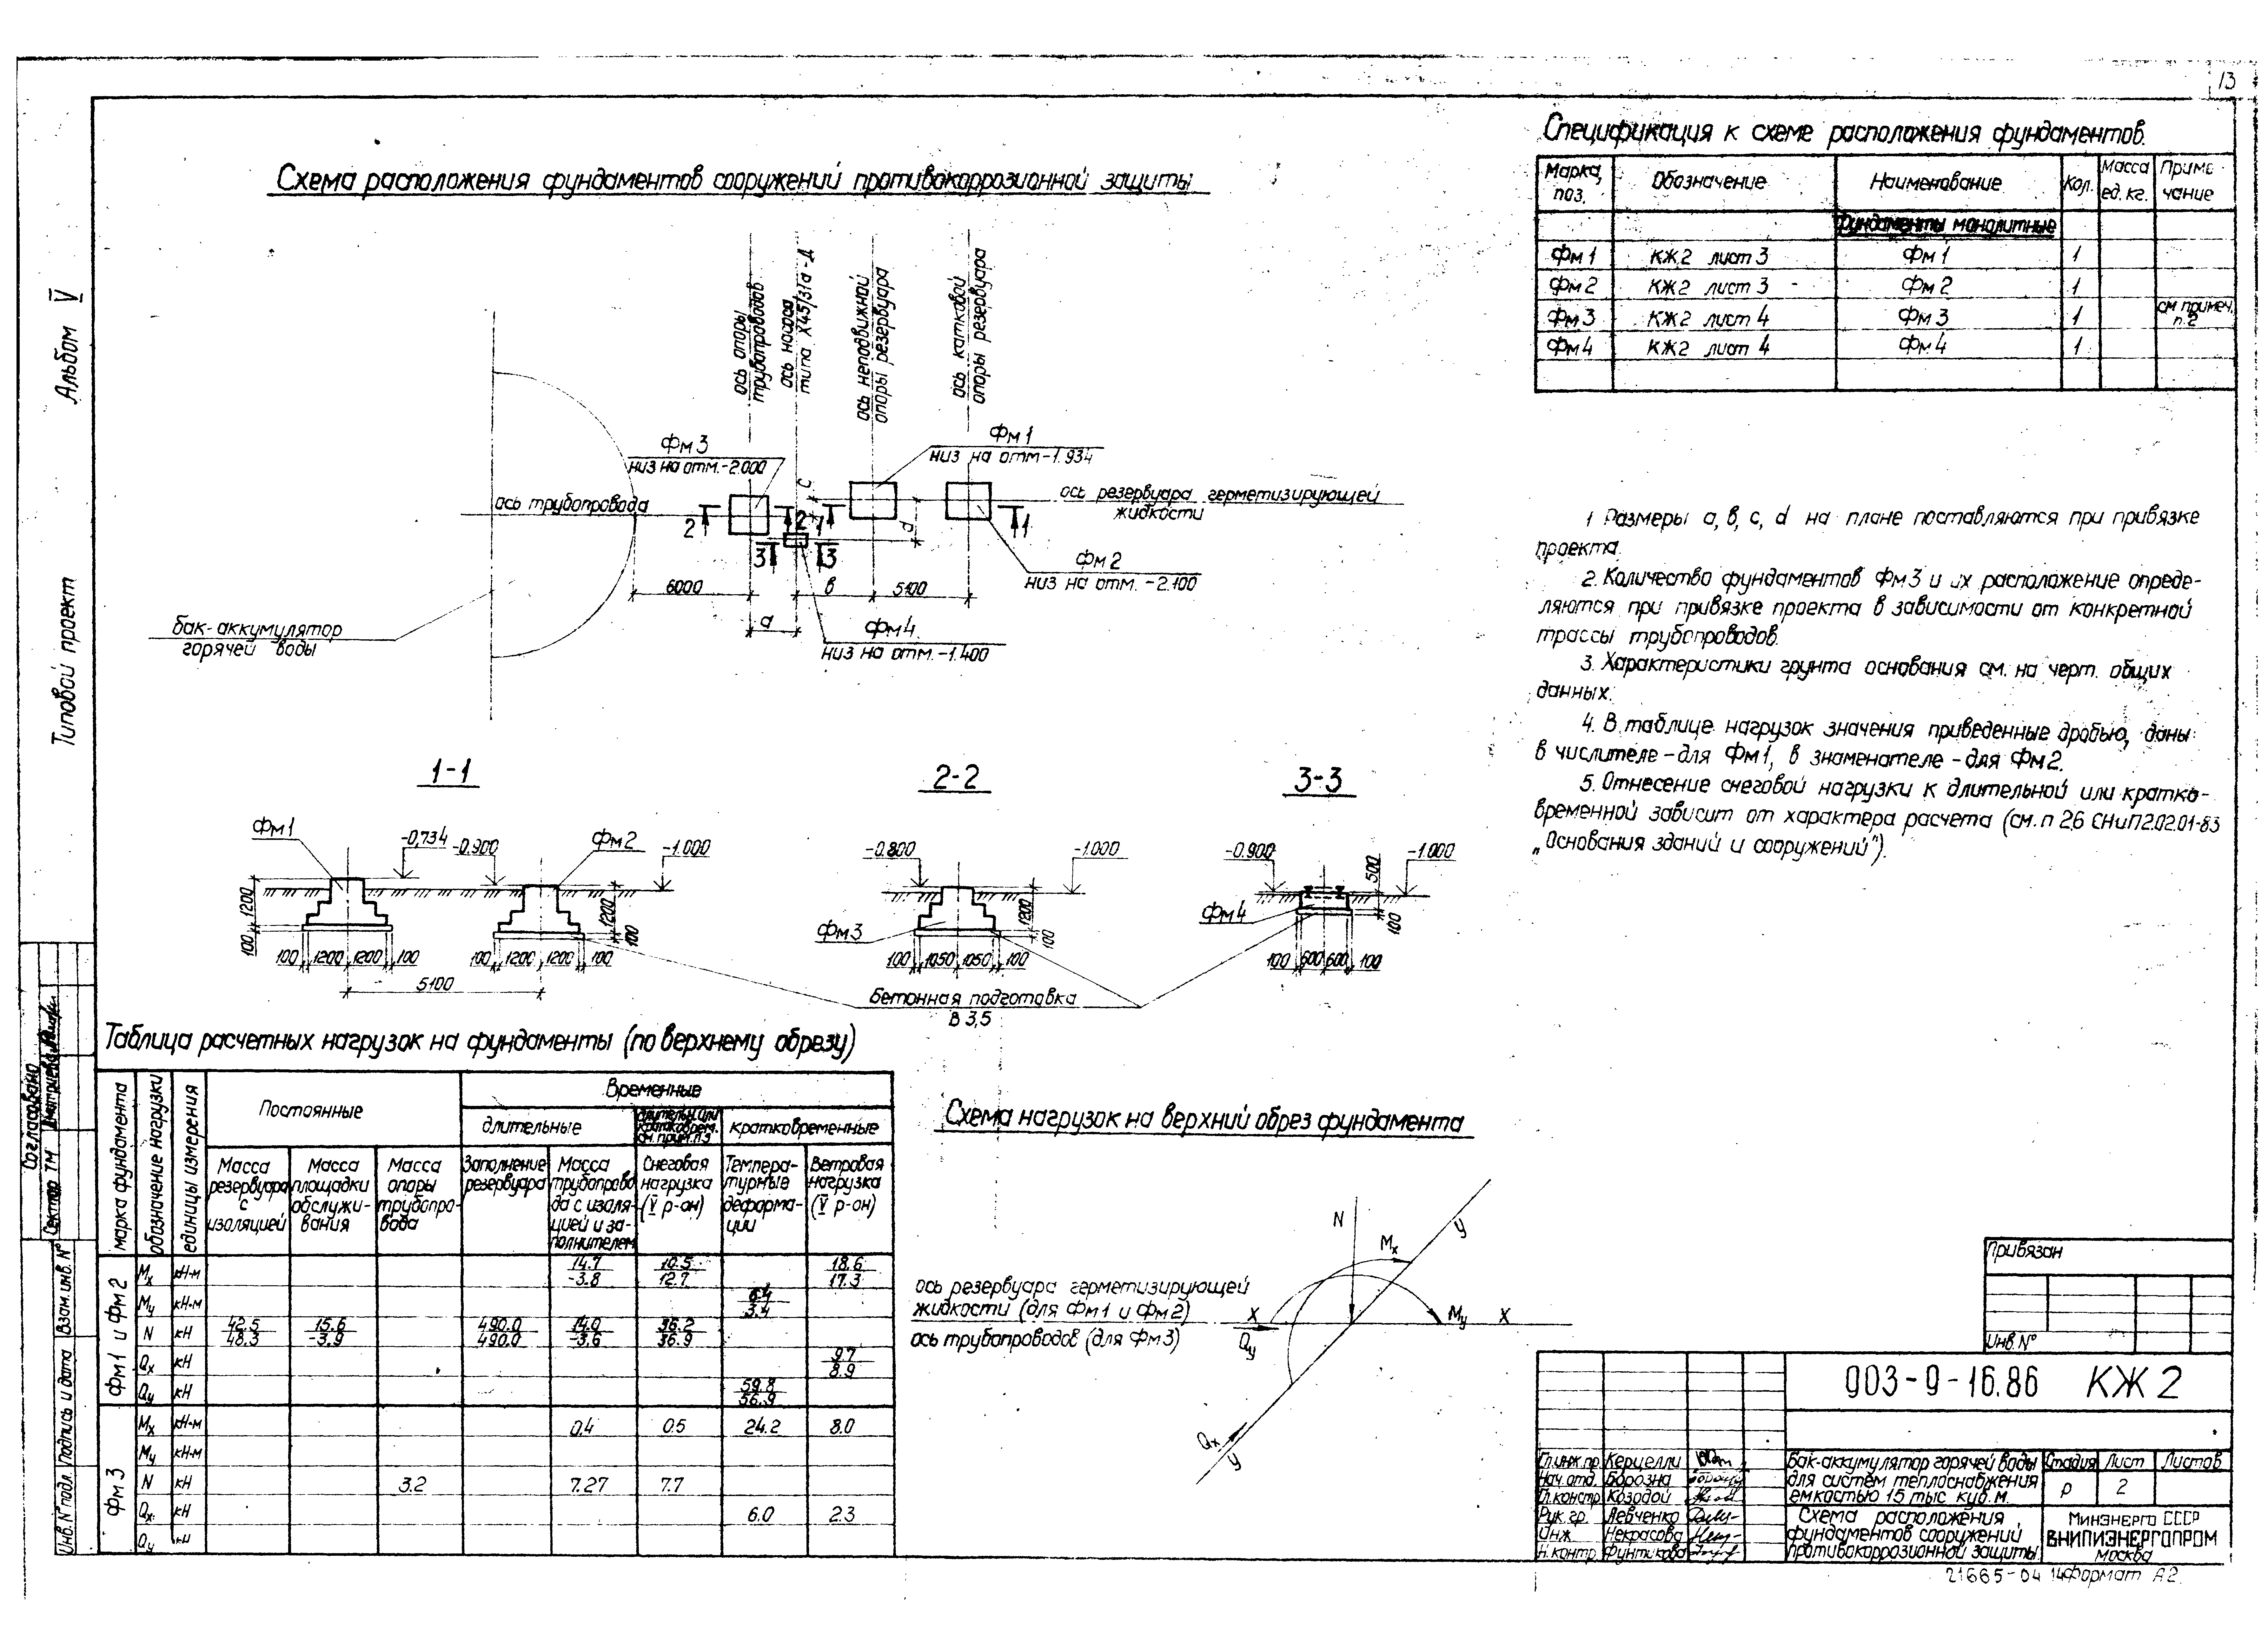 13
Альбом V
Типовой проект
Схема расположения фундаментов сооружений противокоррозионной защиты
ось опоры
трубопроводов
ось насоса
типа Х45/31а-Д
ось неподвижной
опоры резервуара
ось катковой
опоры резервуара
Фм3
низ на отм.-2.000
Фм1
низ на отм-1.934
ось трубопровода
ось резервуара герметизирующей
жидкости
2
2
1
1
3
3
с
d
Фм2
низ на отм. -2.100
6000
в
5100
а
Фм4
низ на отм.-1.400
бак-аккумулятор
горячей воды
1-1
Фм1
-0,734
-0.900
Фм2
-1.000
1200
100
1200
100
100 1200 1200 100
100 1200 1200 100
5100
2-2
-0.800
-1.000
Фм3
1200
100
100 1050 1050 100
3-3
-0.900
500
-1.000
Фм4
100
100 600 600 100
Бетонная подготовка
В 3,5
Спецификация к схеме расположения фундаментов.
Марка, поз. Обозначение Наименование Кол. Масса ед. кг. Приме чание
Фундаменты монолитные
Фм1 КЖ2 лист 3 Фм1 1
Фм2 КЖ2 лист 3 - Фм2 1
Фм3 КЖ2 лист 4 Фм3 1 см примеч. п. 2
Фм4 КЖ2 лист 4 Фм4 1
1 Размеры а, в, с, d на плане поставляются при привязке
проекта.
2. Количество фундаментов Фм3 и их расположение опреде-
ляются при привязке проекта в зависимости от конкретной
трассы трубопроводов.
3. Характеристики грунта основания см. на черт. общих
данных.
4. В таблице нагрузок значения приведенные дробью, даны
в числителе-для Фм1, в знаменателе-для Фм2.
5. Отнесение снеговой нагрузки к длительной или кратко-
временной зависит от характера расчета (см. п 2.6 СНиП2.02.01-83
„Основания зданий и сооружений").
Таблица расчетных нагрузок на фундаменты (по верхнему обрезу)
марка фундамента
обозначение нагрузки
единицы измерения
Постоянные
Временные
длительные
длительн. или кратковрем. см. прим. п.5
кратковременные
Масса резервуара с изоляцией
Масса площадки обслужи-вания
Масса опоры трубопро-вода
Заполнение резервуара
Масса трубопрово да с изоля-цией и за-полнителем
Снеговая нагрузка (V р-он)
Темпера-турные деформа-ции
Ветровая нагрузка (V р-он)
Фм1 и Фм2
Mx кН·м 14.7/-3.8 10.5/12.7 18.6/17.3
My кН·м 3.4
N кН 42.5/48.3 15.6/-3.9 490.0/490.0 14.0/-3.6 36.2/36.9
Qx кН 9.7/8.9
Qy кН 59.8/56.9
Фм3
Mx кН·м 0.4 0.5 24.2 8.0
My кН·м
N кН 3.2 7.27 7.7
Qx кН 6.0 2.3
Qy кН
Схема нагрузок на верхний обрез фундамента
N
Mx
У
ось резервуара герметизирующей
жидкости (для Фм1 и Фм2)
ось трубопроводов (для Фм3)
X
Qy
My
X
Qx
У
Привязан
Инв. №
903-9-16.86 КЖ 2
Гл.инж.пр. Керцелли
Нач. отд. Борозна
Гл.констр. Козодой
Рук. гр. Левченко
Инж. Некрасова
Н.контр. Фунтикова
Бак-аккумулятор горячей воды
для систем теплоснабжения
емкостью 15 тыс. куб. м.
Стадия Лист Листов
Р 2
Схема расположения
фундаментов сооружений
противокоррозионной защиты
Минэнерго СССР
ВНИПИЭНЕРГОПРОМ
Москва
21665-04 14 Формат А2
Согласовано
Сектор ТМ
Инв. № подл.
Подпись и дата
Взам. инв. №